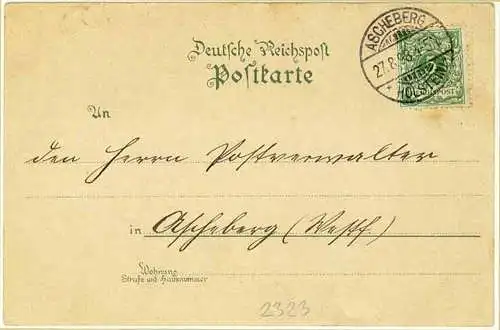 Deutsche Reichspost
Postkarte
ASCHEBERG
27.8.
HOLSTEIN
REICHSPOST
An
den Herrn Postverwalter
in Ascheberg (Westf.)
Wohnung
Straße und Hausnummer
2323